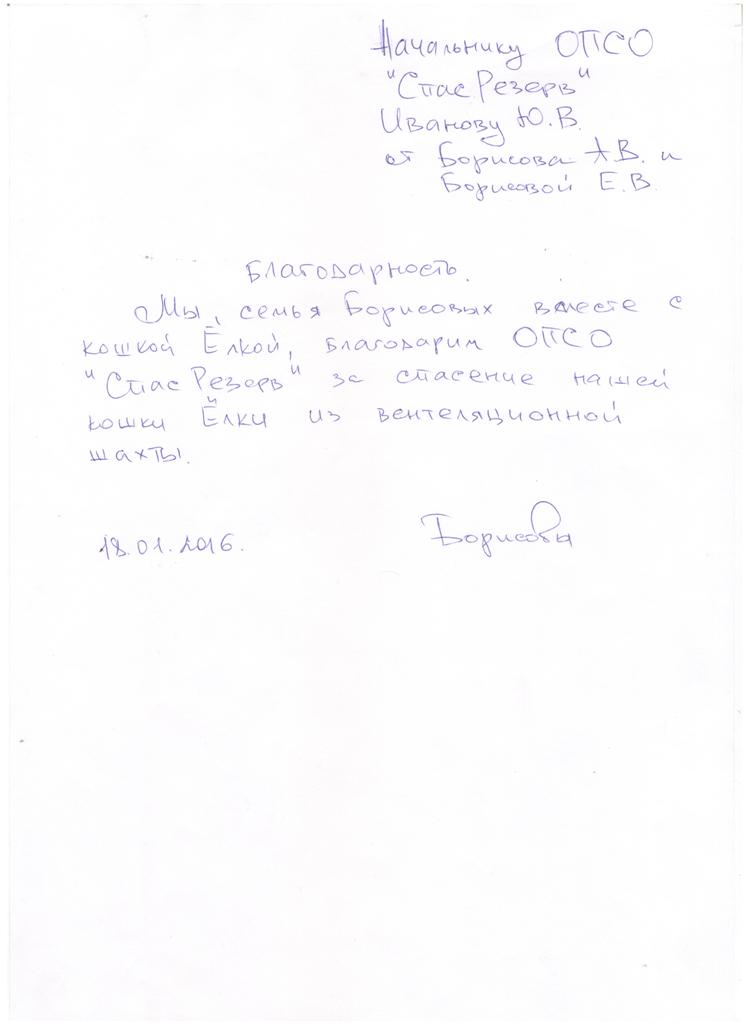 Начальнику ОПСО
"Спас Резерв"
Иванову Ю.В.
от Борисова А.В. и
Борисовой Е.В.
Благодарность.
Мы, семья Борисовых вместе с
кошкой Ёлкой, благодарим ОПСО
"Спас Резерв" за спасение нашей
кошки Ёлки из вентеляционной
шахты.
18.01.2016.
Борисовы